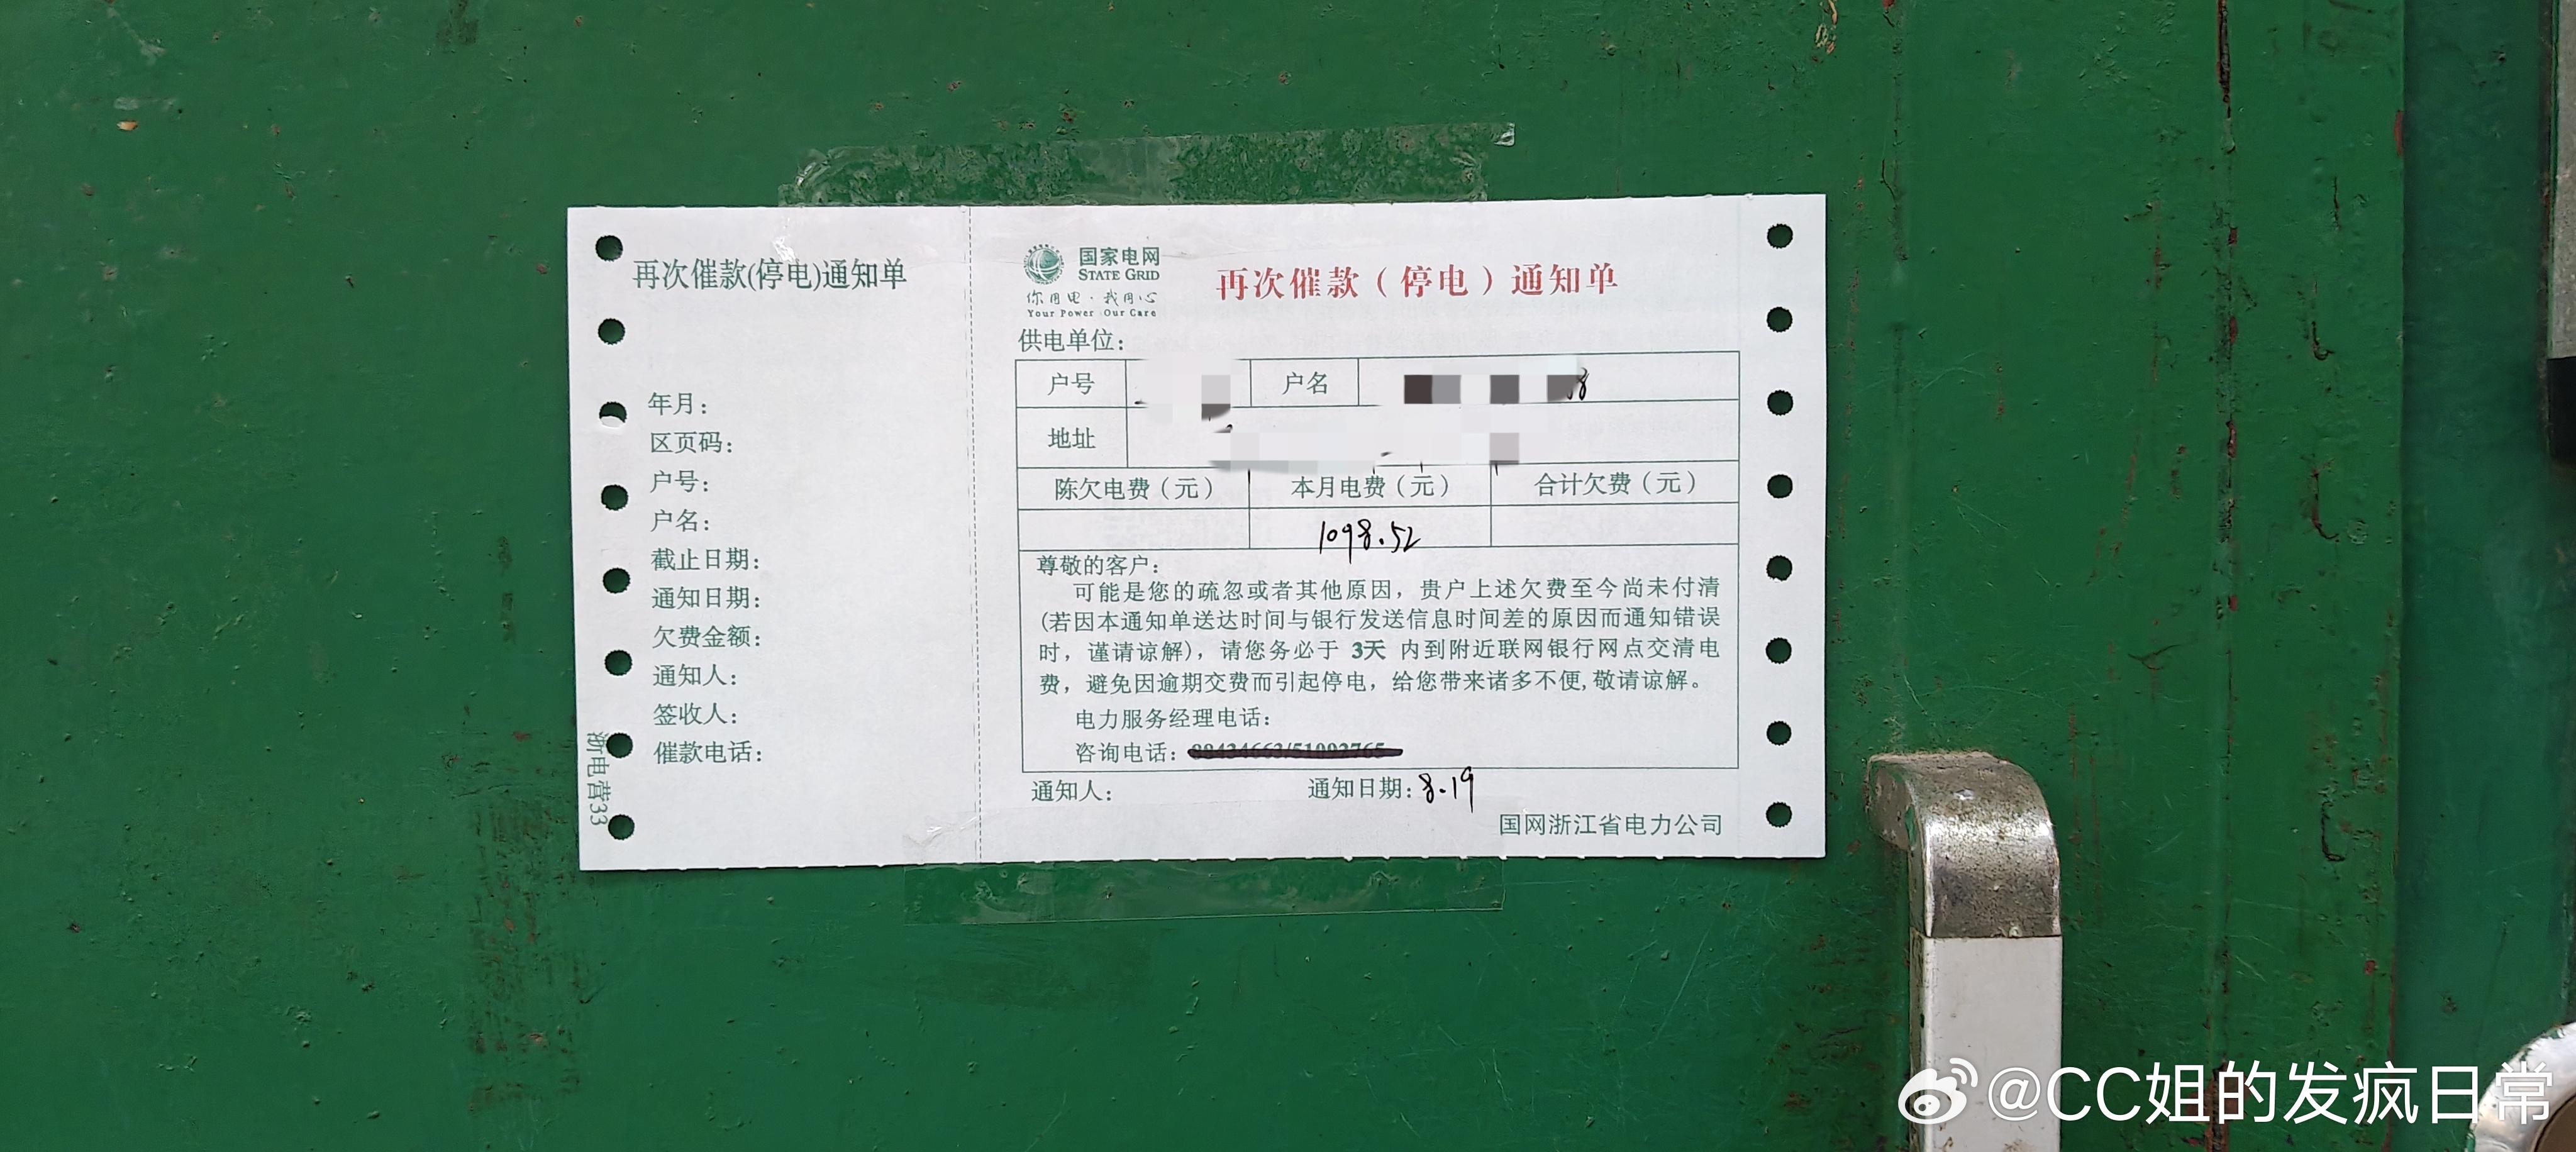 再次催款(停电)通知单
年月：
区页码：
户号：
户名：
截止日期：
通知日期：
欠费金额：
通知人：
签收人：
催款电话：
浙电营33
国家电网
STATE GRID
你用电·我用心
Your Power Our Care
再次催款（停电）通知单
供电单位：
户号 户名 8
地址
陈欠电费（元） 本月电费（元） 合计欠费（元）
1098.52
尊敬的客户：
可能是您的疏忽或者其他原因，贵户上述欠费至今尚未付清
(若因本通知单送达时间与银行发送信息时间差的原因而通知错误
时，谨请谅解)，请您务必于 3天 内到附近联网银行网点交清电
费，避免因逾期交费而引起停电，给您带来诸多不便,敬请谅解。
电力服务经理电话：
咨询电话：
通知人： 通知日期：8.19
国网浙江省电力公司
@CC姐的发疯日常